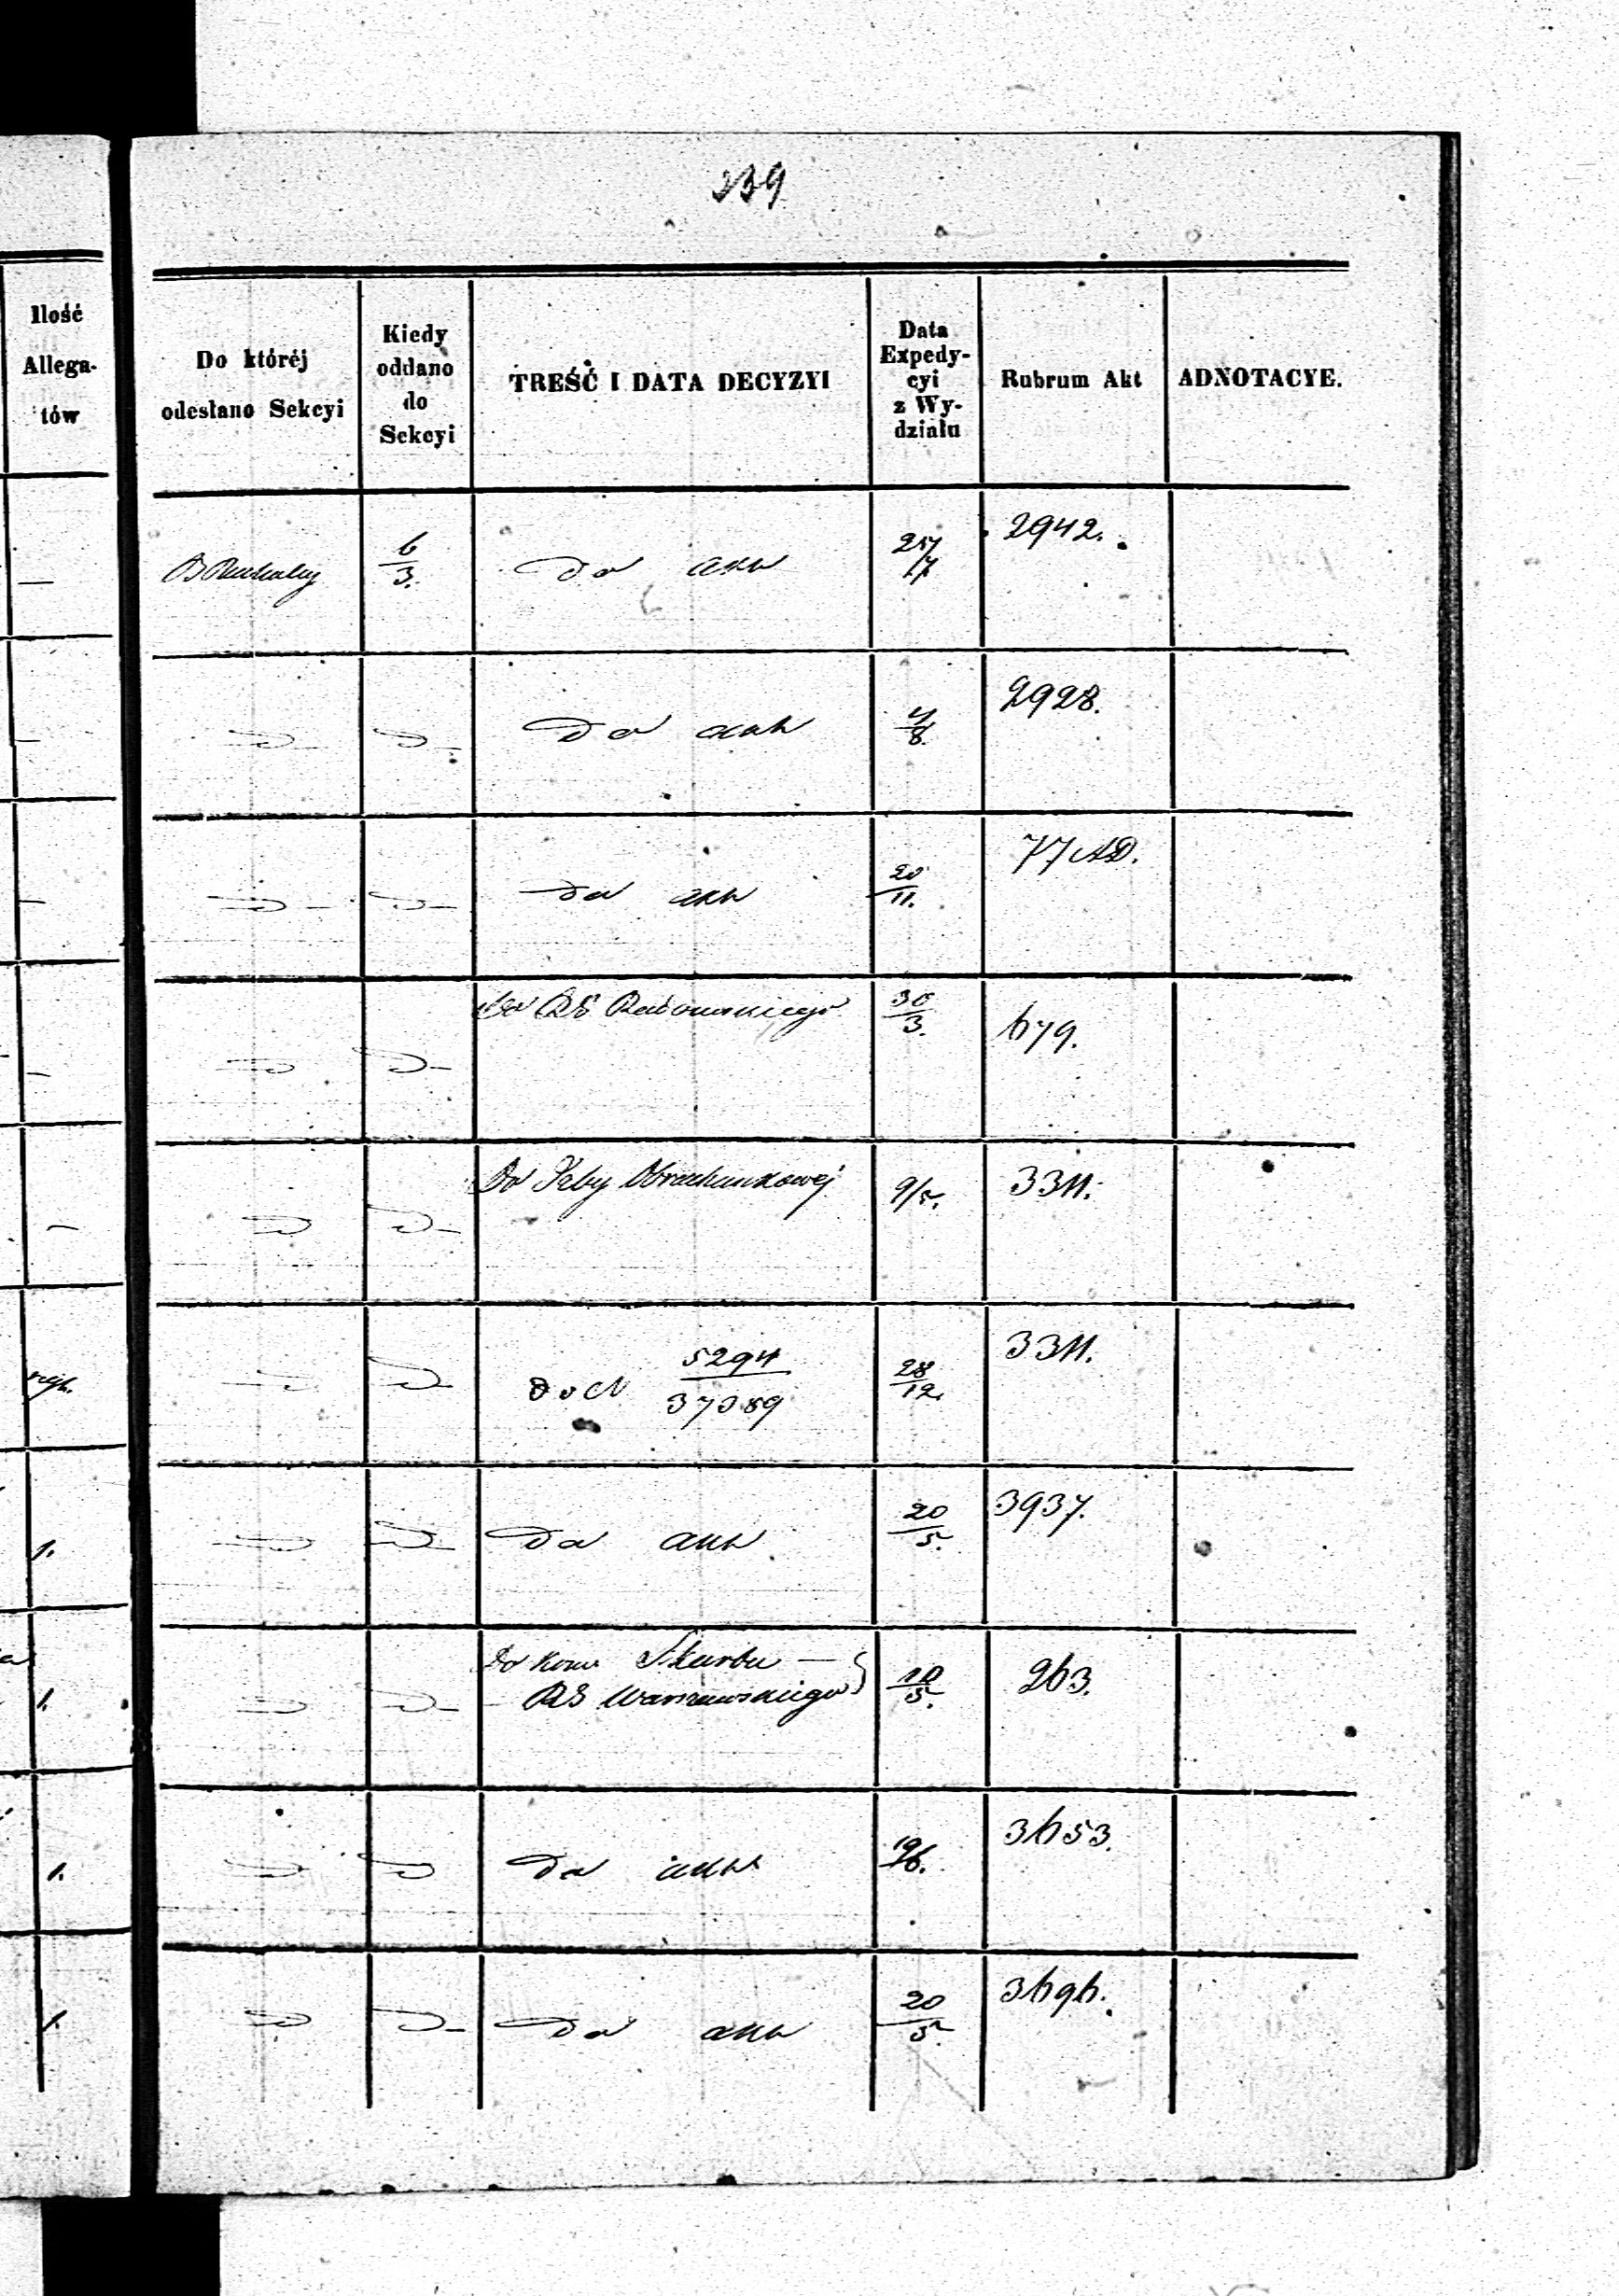 239
Ilość
Allega-
tów
Do któréj
odesłano Sekcyi
Kiedy
oddano
do
Sekcyi
TREŚĆ I DATA DECYZYI
Data
Expedy-
cyi
z Wy-
działu
Rubrum Akt
ADNOTACYE.
6/3. Do akt 2942.
D D Do akt 4/8. 2928.
D D Do akt 20/11. 77 AD.
D D Do RG Radomskiego 30/3. 679.
D D Do Izby Obrachunkowej 9/5. 3311.
D D Do N 5294/37089 28/12. 3311.
1. D D Do akt 20/5. 3937.
1. D D Do Kom Skarbu —
RG Warszawskiego 10/5. 263.
1. D D Do akt 19/6. 3653.
1. D D Do akt 20/5. 3696.